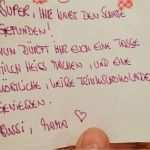 SUPER, IHR HABT DEN SCHATZ
GEFUNDEN!
NUN DÜRFT IHR EUCH EINE TASSE
MILCH HEISS MACHEN, UND EINE
KÖSTLICHE, WEISSE TRINKSCHOKOLADE
GENIESSEN.
BUSSI, MAMA